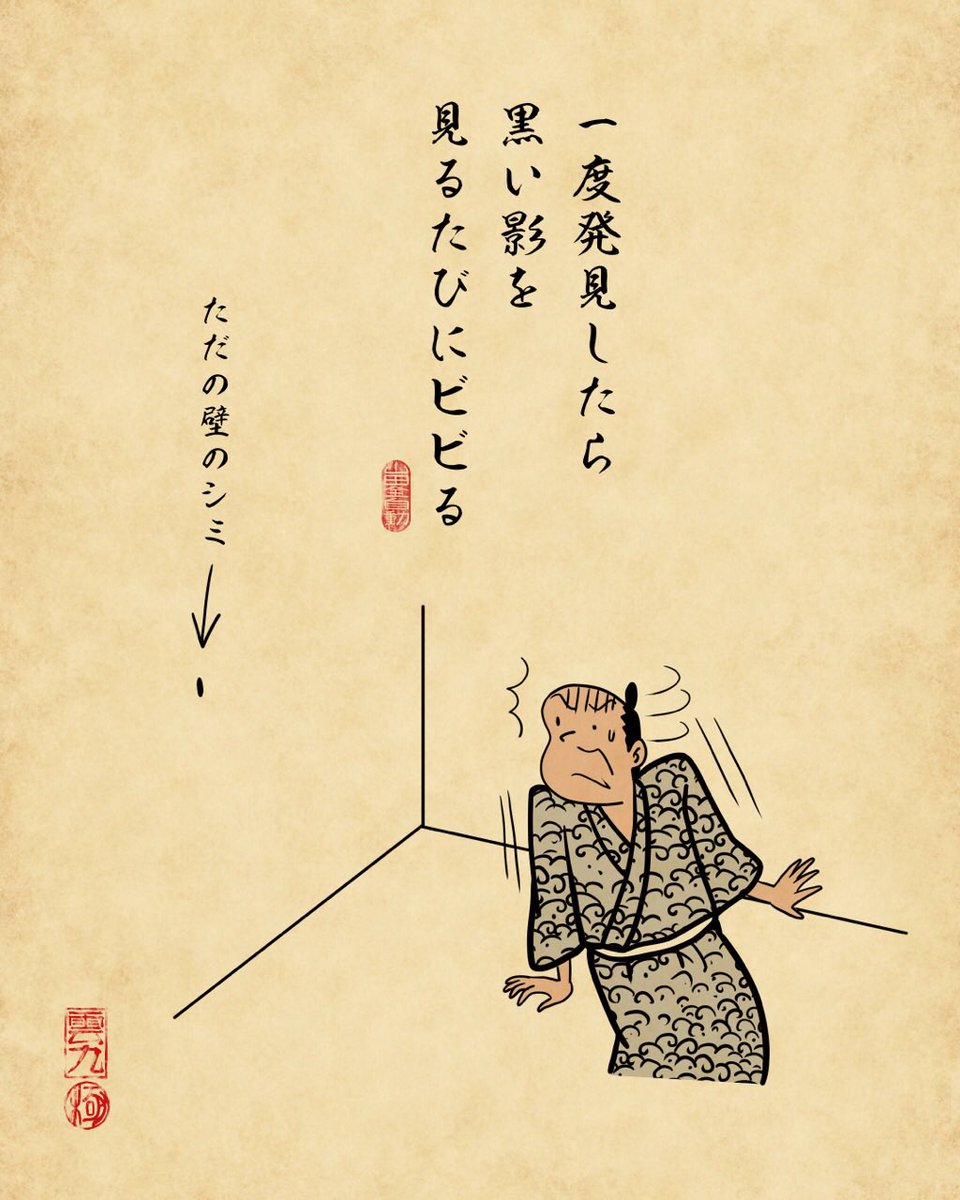 一度発見したら
黒い影を
見るたびにビビる
ただの壁のシミ
雲九
極